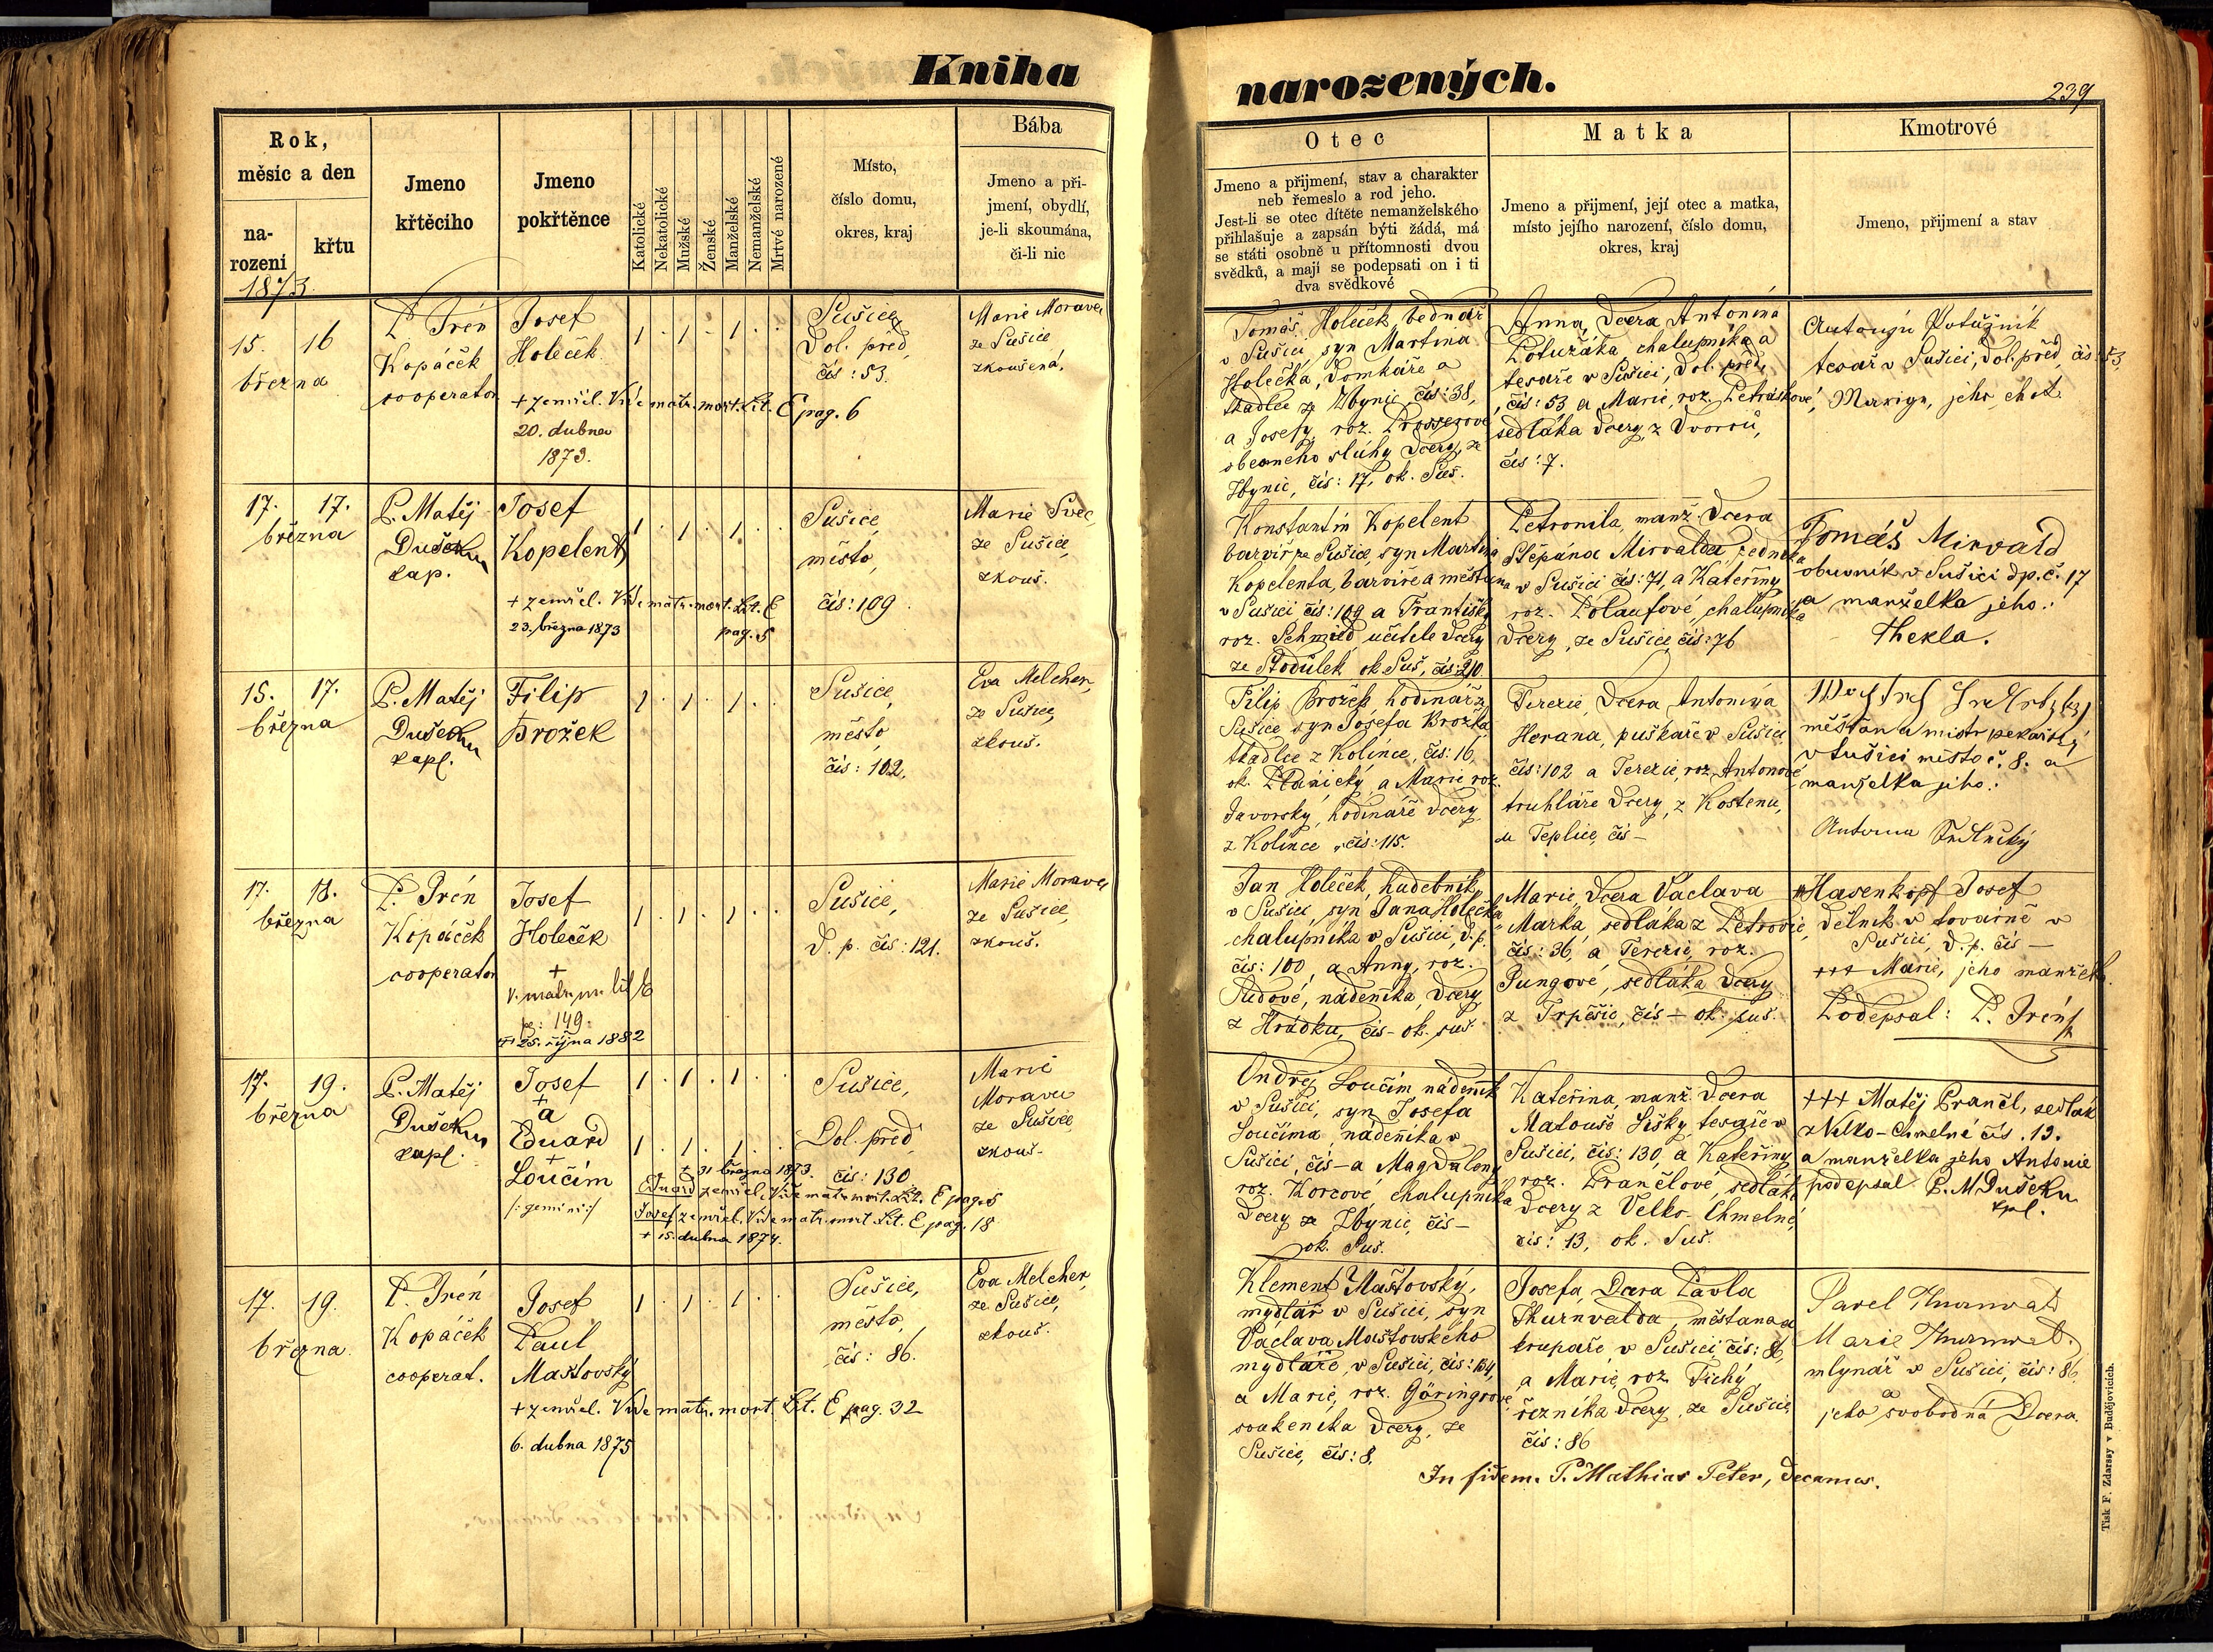 Kniha
narozených.
239
Rok,
měsíc a den
na-
rození
křtu
1873.
Jmeno
křtěcího
Jmeno
pokřtěnce
Katolické
Nekatolické
Mužské
Ženské
Manželské
Nemanželské
Mrtvé narozené
Místo,
číslo domu,
okres, kraj
Bába
Jmeno a při-
jmení, obydlí,
je-li skoumána,
či-li nic
Otec
Jmeno a přijmení, stav a charakter
neb řemeslo a rod jeho.
Jest-li se otec dítěte nemanželského
přihlašuje a zapsán býti žádá, má
se státi osobně u přítomnosti dvou
svědků, a mají se podepsati on i ti
dva svědkové
Matka
Jmeno a přijmení, její otec a matka,
místo jejího narození, číslo domu,
okres, kraj
Kmotrové
Jmeno, přijmení a stav
15. 16
března
P. Irén
Kopáček
cooperator
Josef
Holeček
+ zemřel. Vide matr. mort. Lit. E pag. 6
20. dubna
1873.
1 . 1 . 1 . .
Sušice,
Dol. před,
čís: 53.
Marie Moravec
ze Sušice
zkoušená.
Tomáš Holeček, bednář
v Sušici, syn Martina
Holečka, domkáře a
tkadlce ze Zbynic, čís: 38,
a Josefy, roz.
obecního sluhy dcery, ze
Zbynic, čís: 17, ok. Suš.
Anna, dcera Antonína
Potužáka, chalupníka a
tesaře v Sušici, dol. před,
čís: 53 a Marie, roz. Petráškové,
sedláka dcery, z Dvorců,
čís: 7.
Antonín Potužník
tesař v Sušici, dol. před, čís: 53,
jeho choť
17. 17.
března
P. Matěj
Dušek
kap.
Josef
Kopelent
+ zemřel. Vide matr. mort. Lit. E
23. března 1873 pag. 5
1 . 1 . 1 . .
Sušice,
město,
čís: 109
Marie Švec,
ze Sušice,
zkouš.
Konstantin Kopelent
barvíř ze Sušice, syn Martina
Kopelenta, barvíře a měšťana
v Sušici čís: 109 a Františky
roz. Schmied učitele dcery
ze Stodůlek ok Suš, čís: 210
Petronila, manž. dcera
Štěpána Mirvalda, zedníka
v Sušici čís: 71, a Kateřiny
roz. Polaufové, chalupníka
dcery, ze Sušice, čís: 76
Tomáš Mirvald
obuvník v Sušici dp. č. 17
a manželka jeho:
Thekla.
15. 17.
března
P. Matěj
Dušek
kapl.
Filip
Brožek
1 . 1 . 1 . .
Sušice,
město,
čís: 102.
Eva Melcher,
ze Sušice,
zkouš.
Filip Brožek, hodinář z
Sušice, syn Josefa Brožka
tkadlce z Kolince, čís: 16,
ok. Plánický, a Marie roz.
Javorský, hodináře dcery
z Kolince, čís: 115.
Terezie, dcera Antonína
Herana, puškaře v Sušici
čís: 102 a Terezie, roz. Antonové,
truhláře dcery, z Kostenu,
u Teplic, čís –
měšťan a mistr pekařský
v Sušici město č. 8. a
manželka jeho:
17. 18.
března
P. Irén
Kopáček
cooperator
Josef
Holeček
+
v. matr. m. lit E
pg: 149.
+ 25. října 1882
1 . 1 . 1 . .
Sušice,
d. p. čís: 121.
Marie Moravec
ze Sušice,
zkouš.
Jan Holeček, hudebník
v Sušici, syn Jana Holečka,
chalupníka v Sušici, d. p.
čís: 100, a Anny, roz.
Pudové, nádeníka dcery
z Hrádku, čís – ok. suš.
Marie, dcera Václava
Marka, sedláka z Petrovic,
čís: 36, a Terezie, roz.
Pungové, sedláka dcery
z Trpěšic, čís – ok. suš.
Hasenkopf Josef
dělník v továrně v
Sušici, d. p. čís –
+++ Marie, jeho manželka.
Podepsal: P. Irén
17. 19.
března
P. Matěj
Dušek
kapl.
Josef
+
a
Eduard
+
Loučím
/: gemini :/
1 . 1 . 1 . .
1 . 1 . 1 . .
+ 31 března 1873.
Eduard zemřel. Vide matr. mort. Lit. E pag. 5
Josef zemřel. Vide matr. mort Lit. E pag. 18
+ 15. dubna 1874.
Sušice,
Dol. před
čís: 130
Marie
Moravec
ze Sušice
zkouš.
Ondřej Loučím, nádeník
v Sušici, syn Josefa
Loučíma, nádeníka v
Sušici, čís – a Magdaleny
roz. Korcové, chalupníka
dcery ze Zbynic, čís –
ok. Suš.
Kateřina, manž. dcera
Matouše Lišky, tesaře v
Sušici, čís: 130, a Kateřiny
roz. Prančlové, sedláka
dcery z Velko-Chmelné,
čís: 13, ok. Suš.
+++ Matěj Prančl, sedlák
z Velko-Chmelné čís. 13.
a manželka jeho Antonie
podepsal P. M Dušek
kpl.
17. 19.
března.
P. Irén
Kopáček
cooperat.
Josef
Paul
Maštovský
+ zemřel. Vide matr. mort. Lit. E pag. 32
6. dubna 1875
1 . 1 . 1 . .
Sušice,
město,
čís: 86.
Eva Melcher,
ze Sušice,
zkouš.
Klement Maštovský,
mydlář v Sušici, syn
Václava Maštovského
mydláře, v Sušici, čís: 134,
a Marie, roz. Göringrové,
soukeníka dcery, ze
Sušice, čís: 8.
Josefa, dcera Pavla
Thurnvalda, měšťana a
krupaře v Sušici, čís: 86,
a Marie, roz Tichý,
řezníka dcery, ze Sušice
čís: 86
Pavel Thurnwald
Marie Thurnwald.
mlynář v Sušici, čís: 86,
a
jeho svobodná dcera.
In fidem. P. Mathias Peter, decanus.
Tisk F. Zdarssy v Budějovicích.